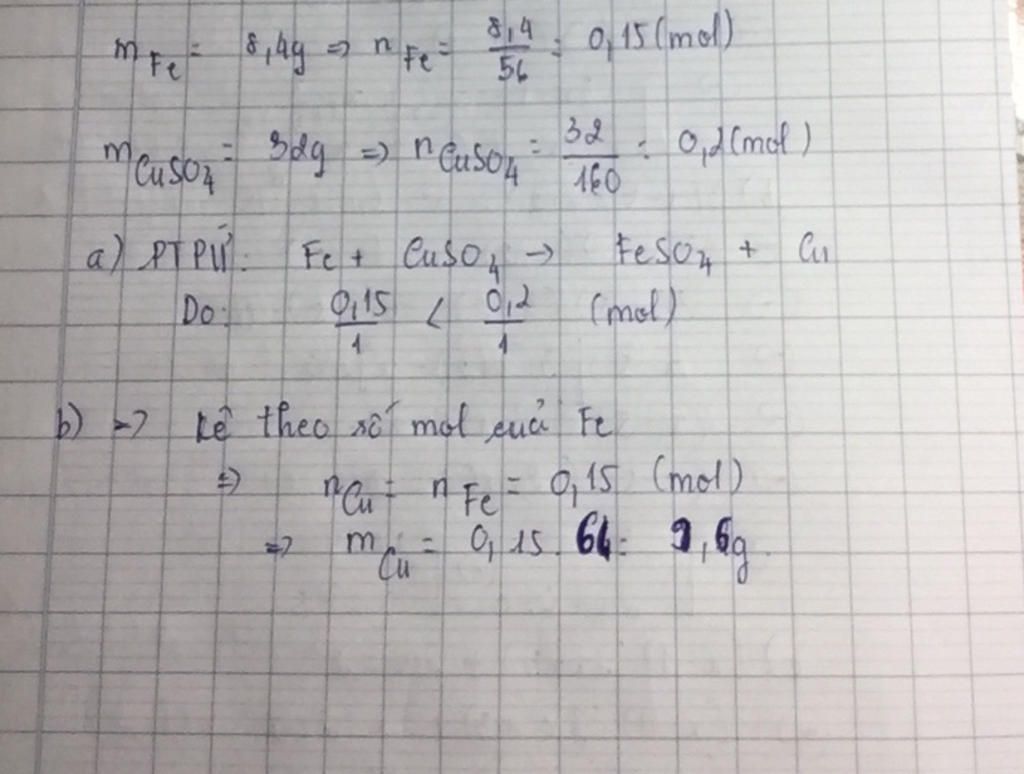 m Fe = 8,4g => n Fe = 8,4/56 = 0,15 (mol)
m CuSO4 = 32g => n CuSO4 = 32/160 = 0,2 (mol)
a) PTPƯ: Fe + CuSO4 -> FeSO4 + Cu
Do: 0,15/1 < 0,2/1 (mol)
b) => kê theo số mol cuả Fe
=> n Cu = n Fe = 0,15 (mol)
=> m Cu = 0,15 . 64 = 9,6g.